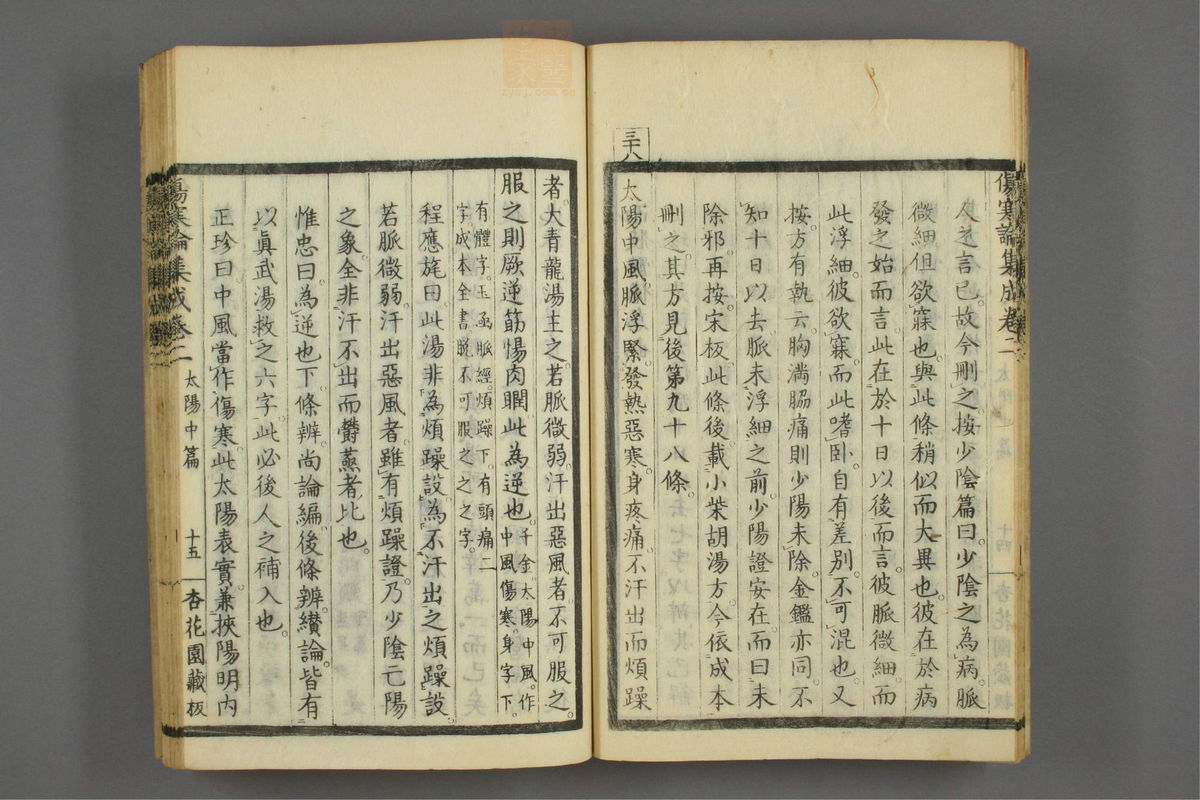 傷寒論集成卷二
人之言已故今刪之按少陰篇曰少陰之為病脈
微細但欲寐也與此條稍似而大異也彼在於病
發之始而言此在於十日以後而言彼脈微細而
此浮細彼欲寐而此嗜臥自有差別不可混也又
按方有執云胸滿脇痛則少陽未除金鑑亦同不
知十日以去脈未浮細之前少陽證安在而曰未
除邪再按宋板此條後載小柴胡湯方今依成本
刪之其方見後第九十八條
三十八
太陽中風脈浮緊發熱惡寒身疼痛不汗出而煩躁
者大青龍湯主之若脈微弱汗出惡風者不可服之
服之則厥逆筋惕肉瞤此為逆也千金太陽中風作
中風傷寒身字下
有體字玉函脈經煩躁下有頭痛二
字成本全書脫不可服之之之字
程應旄曰此湯非為煩躁設為不汗出之煩躁設
若脈微弱汗出惡風者雖有煩躁證乃少陰亡陽
之象全非汗不出而鬱蒸者比也
惟忠曰為逆也下條辨尚論編後條辨纘論皆有
以眞武湯救之六字此必後人之補入也
正珍曰中風當作傷寒此太陽表實兼挾陽明內
傷寒論集成卷二
太陽中篇
十五
杏花園藏板